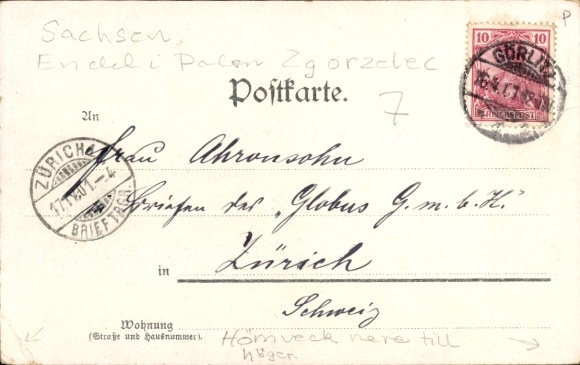 Sachsen,
P
Endel i Polen Zgorzelec
10 10
GÖRLITZ
REICHSPOST
Postkarte.
7
An
ZÜRICH
17.IV.01.-4
BRIEFTRGR.
Frau Ahronsohn
des "Globus G.m.b.H."
in Zürich
Schweiz
Wohnung
(Straße und Hausnummer).
Hörnveck nere till
höger.